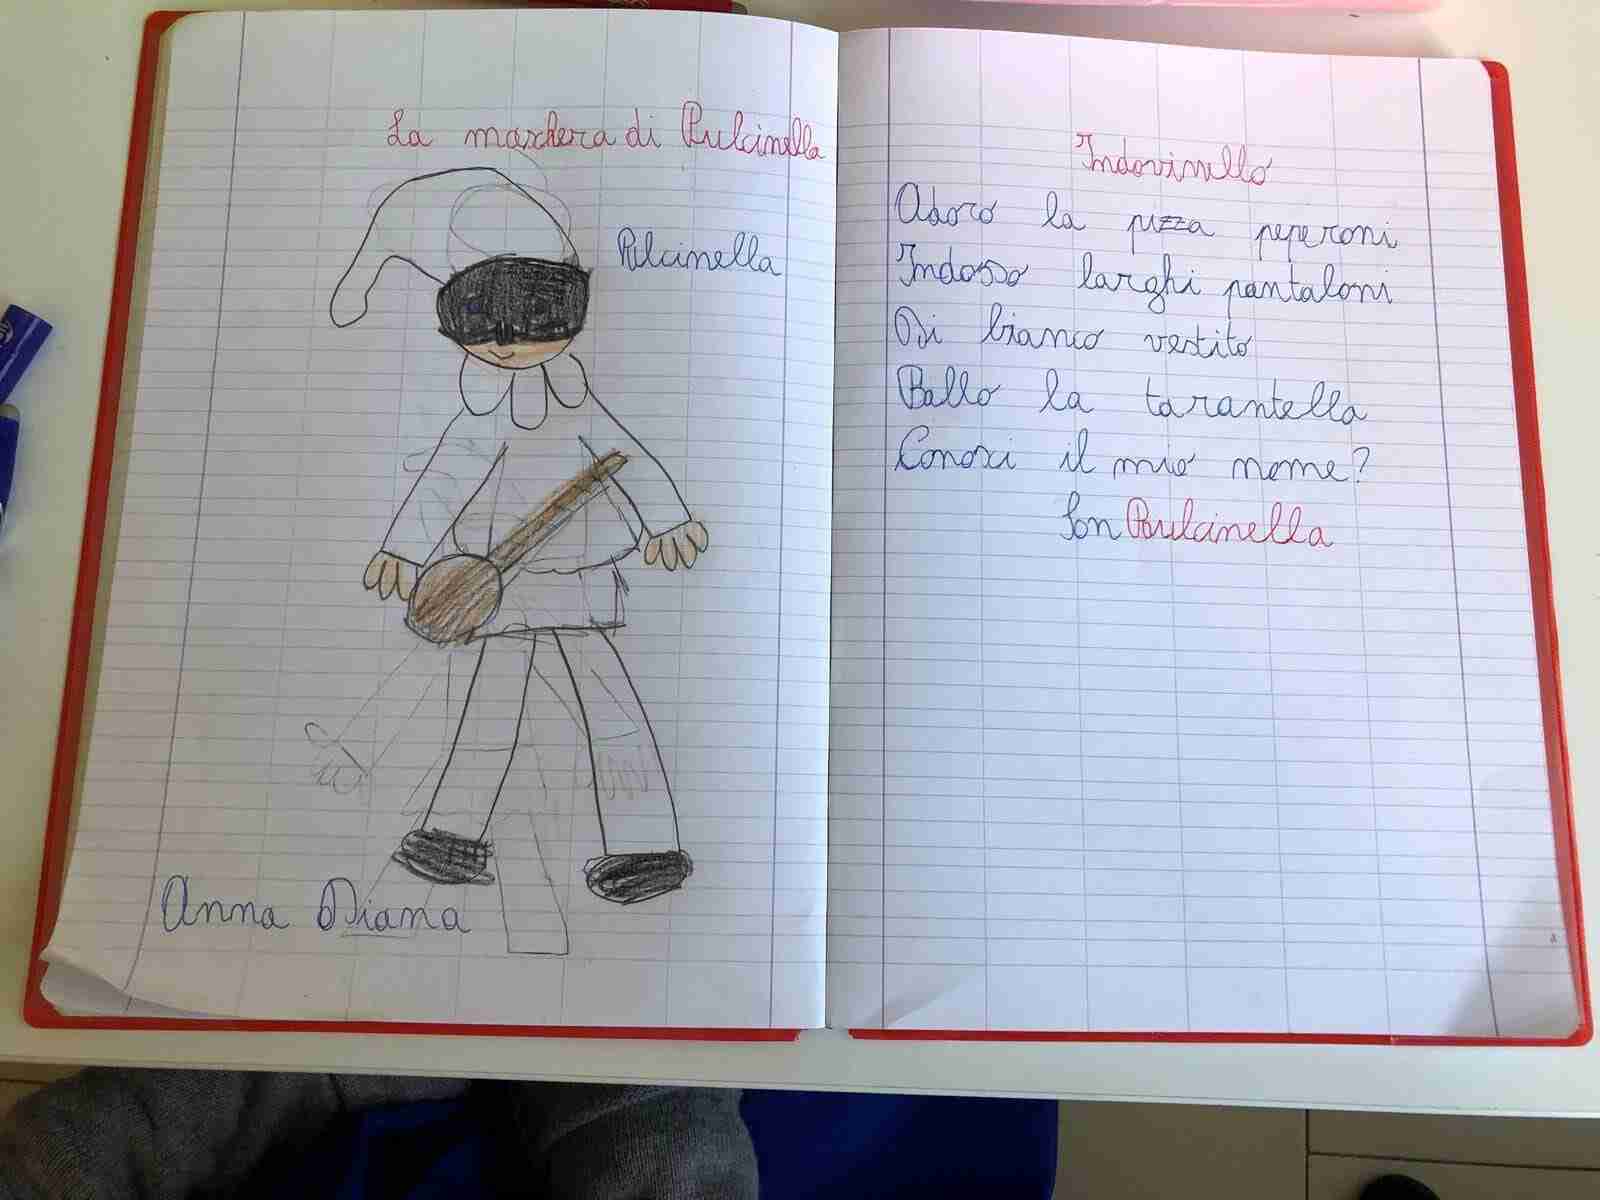 La maschera di Pulcinella
Pulcinella
Anna Diana
Indovinello
Adoro la pizza peperoni
Indosso larghi pantaloni
Di bianco vestito
Ballo la tarantella
Conosci il mio nome?
Son Pulcinella